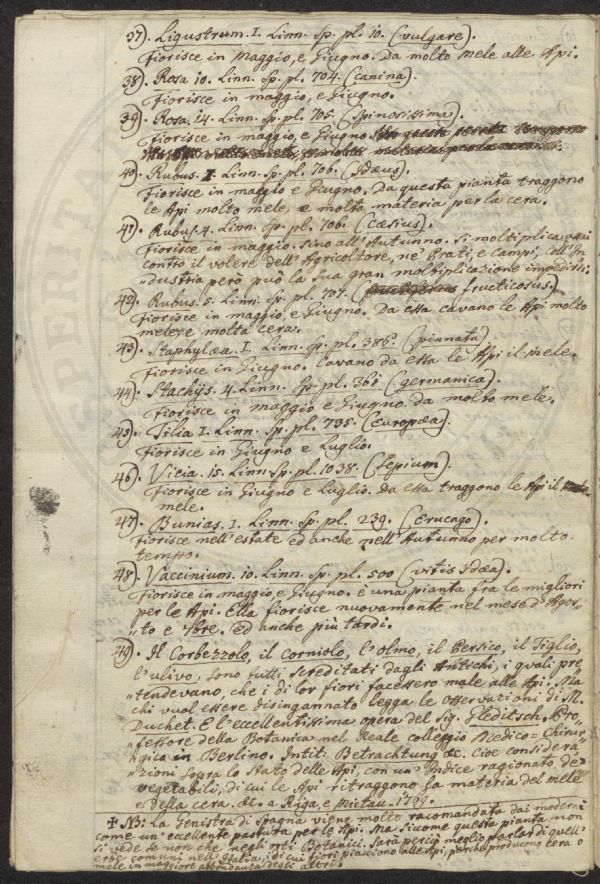 37). Ligustrum. I. Linn. Sp. pl. 10. (vulgare).
Fiorisce in Maggio, e Giugno. Da molto mele alle Api.
38). Rosa 10. Linn. Sp. pl. 704. (canina).
Fiorisce in maggio, e Giugno.
39). Rosa. 14. Linn. Sp. pl. 705. (Spinosissima).
Fiorisce in maggio, e Giugno
40). Rubus. I. Linn. Sp. pl. 706. (Idæus).
Fiorisce in maggio e Giugno. Da questa pianta traggono
le Api molto mele, e molta materia per la cera.
41). Rubus. 4. Linn. Sp. pl. 706. (cæsius).
Fiorisce in maggio. Sino all'Autunno. Si moltiplica assai
contro il volere dell'Agricoltore, ne' Prati, e campi, coll'In
„dustria però può la sua gran moltiplicazione impedirsi.
42. Rubus. 5. Linn. Sp. pl. 707. ( fructicosus.)
Fiorisce in maggio, e Giugno. Da essa cavano le Api molto
mele, e molta cera.
43). Staphylæa. I. Linn. Sp. pl. 386. (pinnata).
Fiorisce in Giugno. Cavano da essa le Api il mele.
44). Stachys. 4. Linn. Sp. pl. (germanica).
Fiorisce in maggio e Giugno da molto mele.
45). Tilia I. Linn. Sp. pl. 735. (europæa).
Fiorisce in Giugno e Luglio.
46). Vicia. 15. Linn. Sp. pl. 1038. (Sepium).
Fiorisce in Giugno e Luglio. Da essa traggono le Api il
mele.
47). Bunias. I. Linn. Sp. pl. 239. (Erucago).
Fiorisce nell'estate ed anche nell'Autunno per molto
tempo.
48). Vaccinium. 10. Linn. Sp. pl. 500 (vitis Idæa).
Fiorisce in maggio, e Giugno. è una pianta fra le migliori
per le Api. Ella fiorisce nuovamente nel mese d'Agos„
„to e 7bre. ed anche più tardi.
49). Il Corbezzolo, il Corniolo, l'olmo, il Persico, il Tiglio,
l'ulivo, sono tutti screditati dagli Antichi, i quali pre
„tendevano, che i di lor fiori facessero male alle Api. Ma
chi vuol essere disingannato legga le osservazioni di M.
Duchet. E l'eccellentissima opera del Sig. Gleditsch. Pro„
„fessore della Botanica nel Reale collegio Medico=Chirur
„gico in Berlino. Intit: Betrachtung &c. cioè considera
„zioni sopra lo stato delle Api, con un Indice ragionato de'
vegetabili, di cui le Api ritraggono la materia del mele
e della cera. &c. a Riga, e Mietau. 1769.
✝ NB: La Genistra di Spagna viene molto racomandata dai moderni
come un'eccellente pastura per le Api. Ma siccome questa pianta non
si vede se non che negli orti Botanici. Sarà perciò meglio parlar di quell'
erbe comuni nell'Italia, i di cui fiori piacciono alle Api, perchè producono cera o
mele in maggiore abbondanza degli altri.